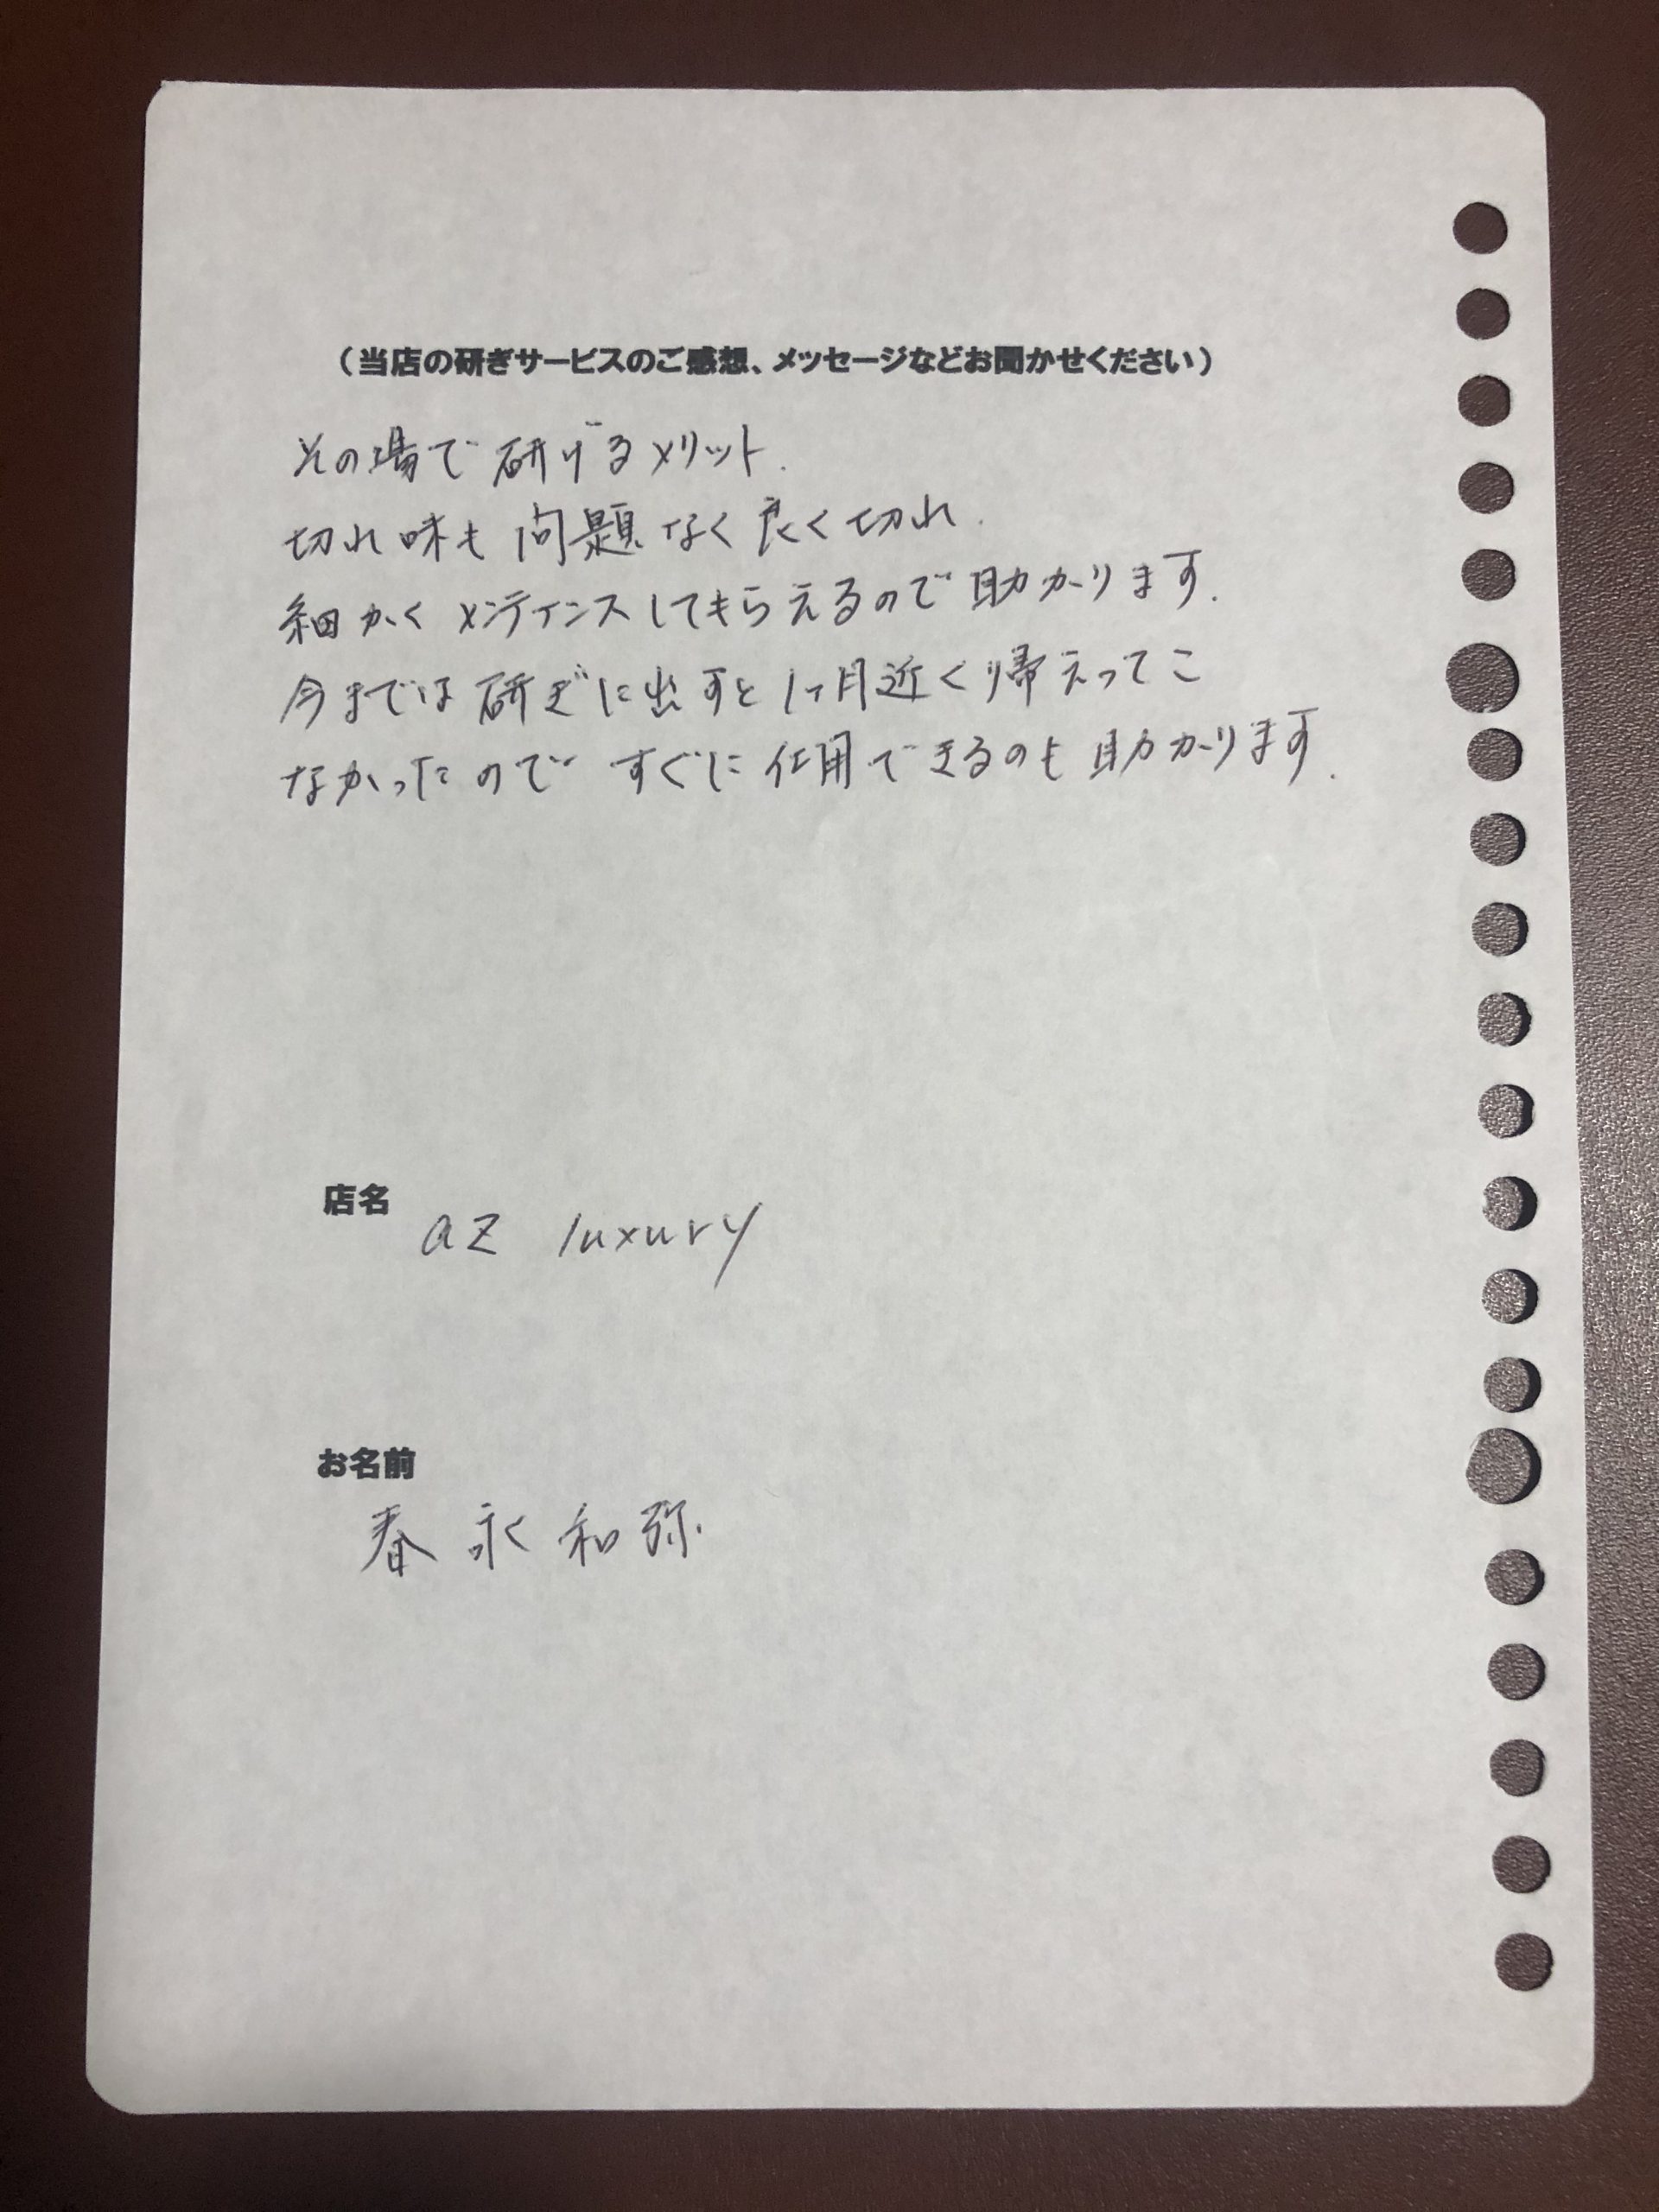 （当店の研ぎサービスのご感想、メッセージなどお聞かせください）
その場で研げるメリット.
切れ味も問題なく良く切れ.
細かくメンテインスしてもらえるので助かります.
今までは研ぎに出すと1ヶ月近く帰えってこ
なかったのですぐに仕用できるのも助かります.
店名
az luxury
お名前
春永和弥